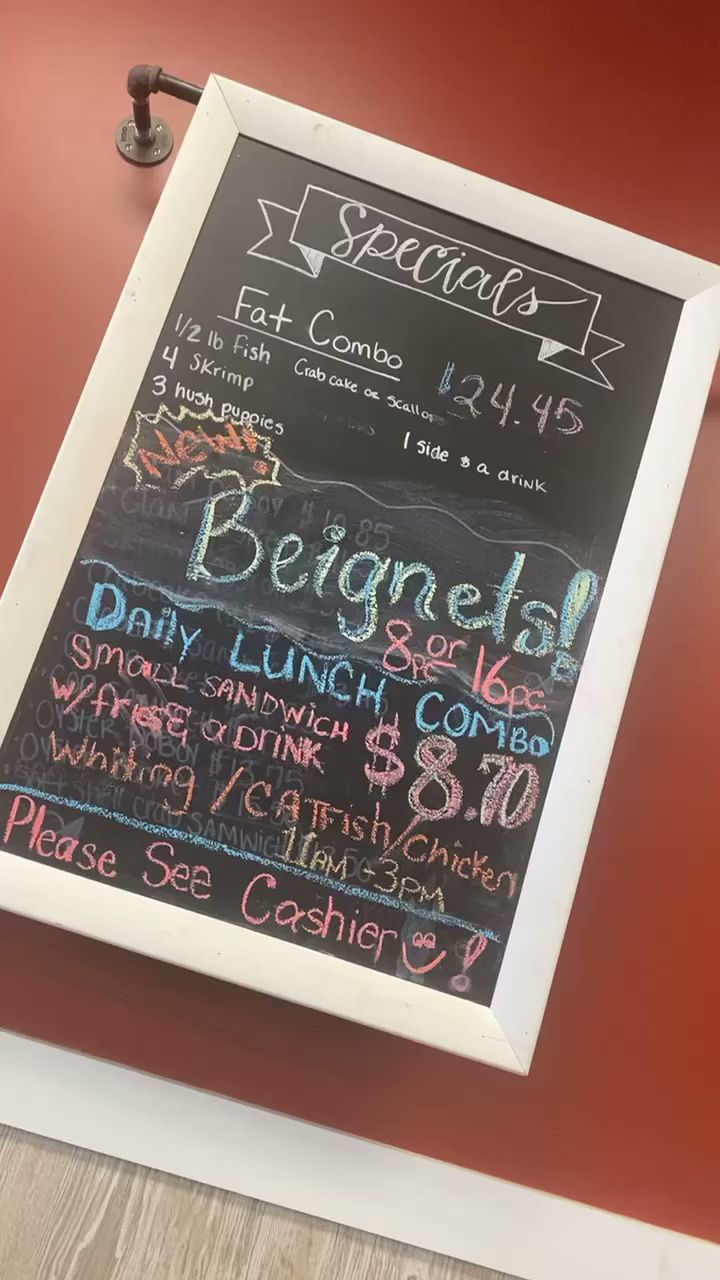 Specials
Fat Combo
$24.45
1/2 lb fish
Crab cake or scallops
4 Skrimp
3 hush puppies
1 side & a drink
New!
Beignets!
8pc or 16pc
Daily LUNCH COMBO
Small SANDWICH
w/fries & a DRINK
$8.70
Whiting / CATfish/Chicken
11AM - 3PM
Please See Cashier!